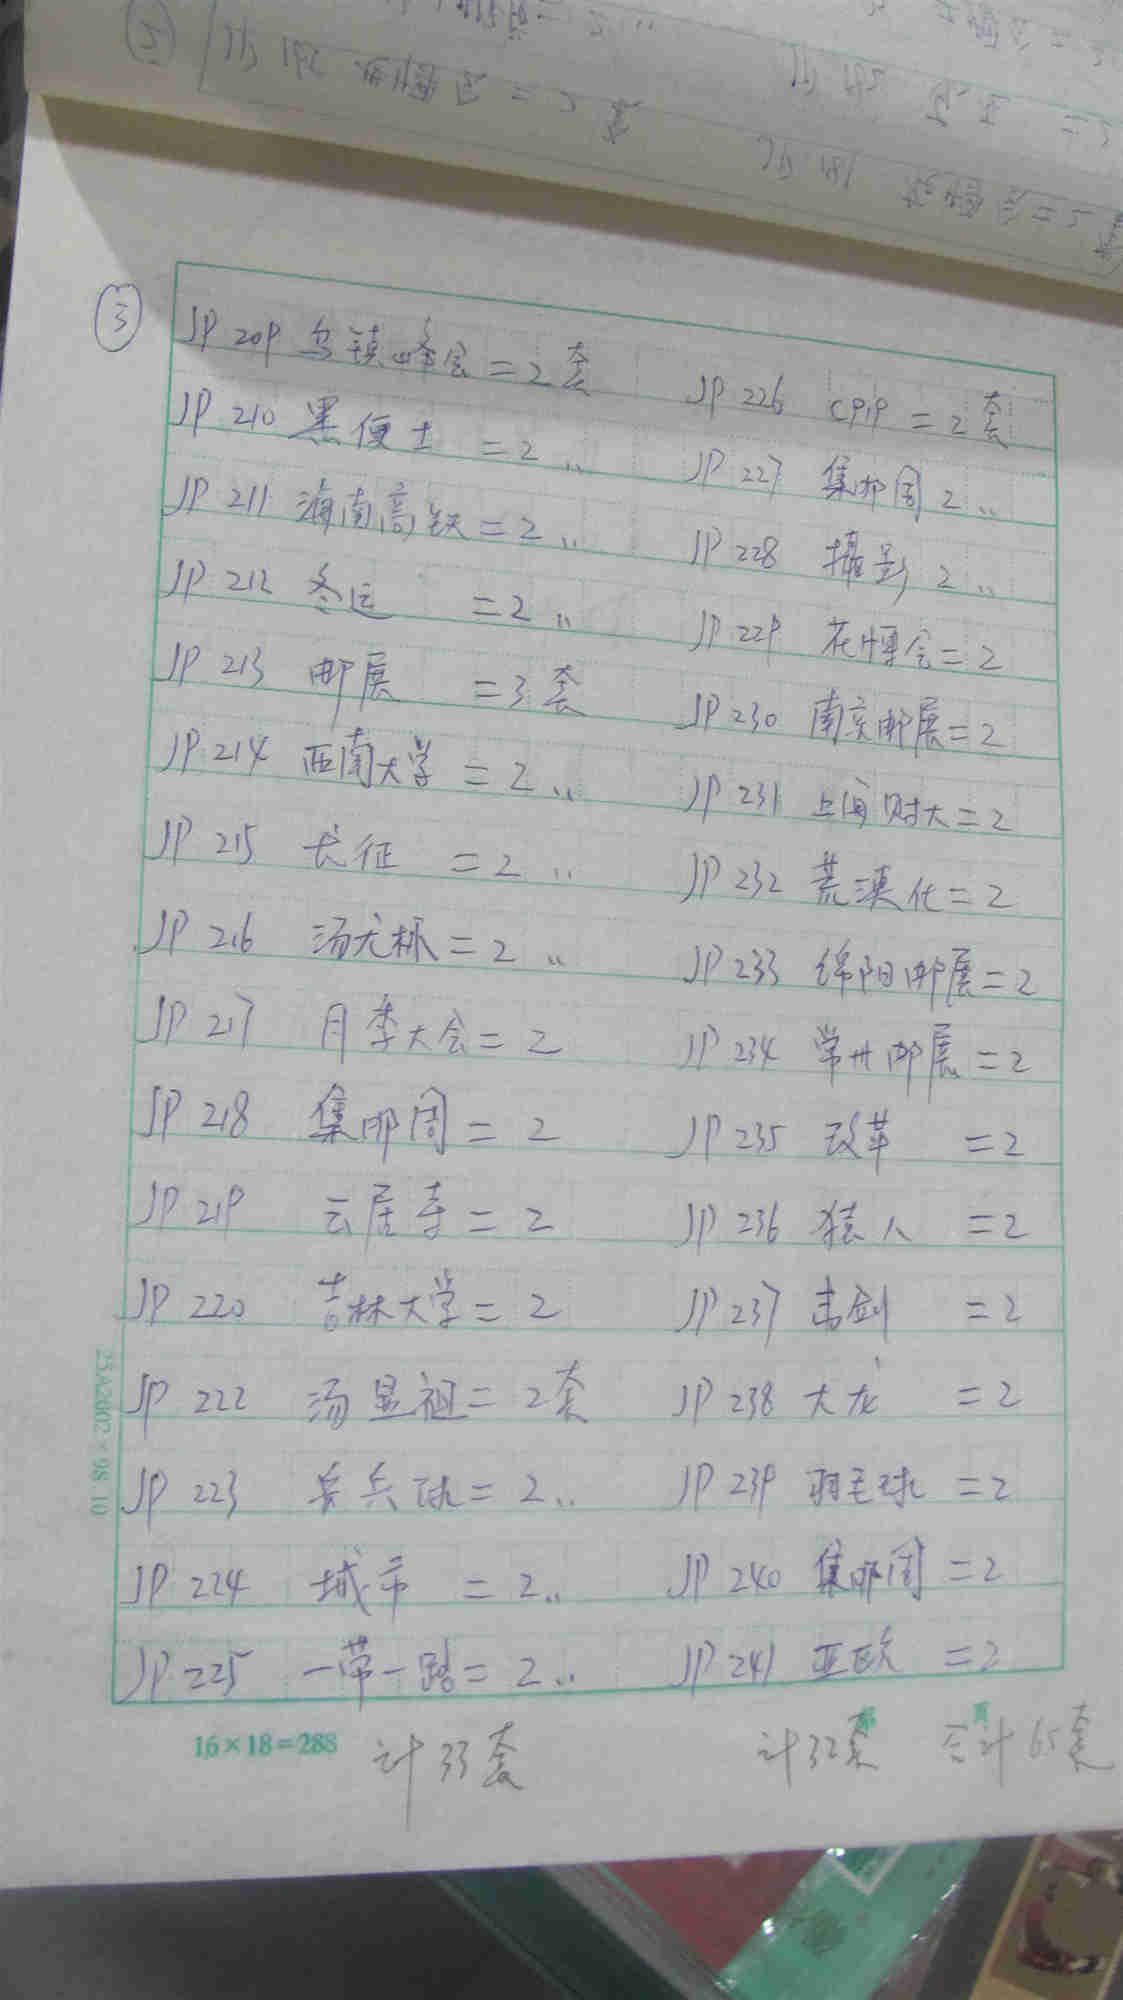 ③
JP 209 乌镇峰会=2套
JP 210 黑便士 =2〃
JP 211 海南高铁=2〃
JP 212 冬运 =2〃
JP 213 邮展 =3套
JP 214 西南大学 =2〃
JP 215 长征 =2〃
JP 216 汤尤杯=2〃
JP 217 月季大会=2
JP 218 集邮周=2
JP 219 云居寺=2
JP 220 吉林大学=2
JP 222 汤显祖=2套
JP 223 乒乓球=2〃
JP 224 城市 =2〃
JP 225 一带一路=2〃
JP 226 CPIP =2套
JP 227 集邮周 2〃
JP 228 摄影 2〃
JP 229 花博会=2
JP 230 南京邮展=2
JP 231 上海财大=2
JP 232 荒漠化=2
JP 233 绵阳邮展=2
JP 234 常州邮展=2
JP 235 改革 =2
JP 236 猿人 =2
JP 237 击剑 =2
JP 238 大龙 =2
JP 239 羽毛球=2
JP 240 集邮周=2
JP 241 亚欧 =2
16×18=288
计33套
计32套
合计65套